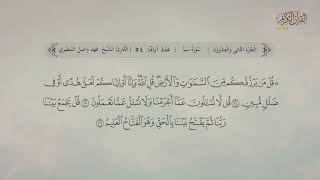 الجُزْءُ الثَّانِي وَالعِشْرُونَ | سُورَةُ سَبَأ | عَدَدُ آيَاتِهَا: ٥٤ | القَارِئُ الشَّيْخُ: فهد واصل المطيري
۞قُلْ مَن يَرْزُقُكُم مِّنَ ٱلسَّمَٰوَٰتِ وَٱلْأَرْضِ قُلِ ٱللَّهُ وَإِنَّآ أَوْ إِيَّاكُمْ لَعَلَىٰ هُدًى أَوْ فِى
ضَلَٰلٍ مُّبِينٍ ۝٢٤ قُل لَّا تُسْـَٔلُونَ عَمَّآ أَجْرَمْنَا وَلَا نُسْـَٔلُ عَمَّا تَعْمَلُونَ ۝٢٥ قُلْ يَجْمَعُ بَيْنَنَا
رَبُّنَا ثُمَّ يَفْتَحُ بَيْنَنَا بِٱلْحَقِّ وَهُوَ ٱلْفَتَّاحُ ٱلْعَلِيمُ ۝٢٦